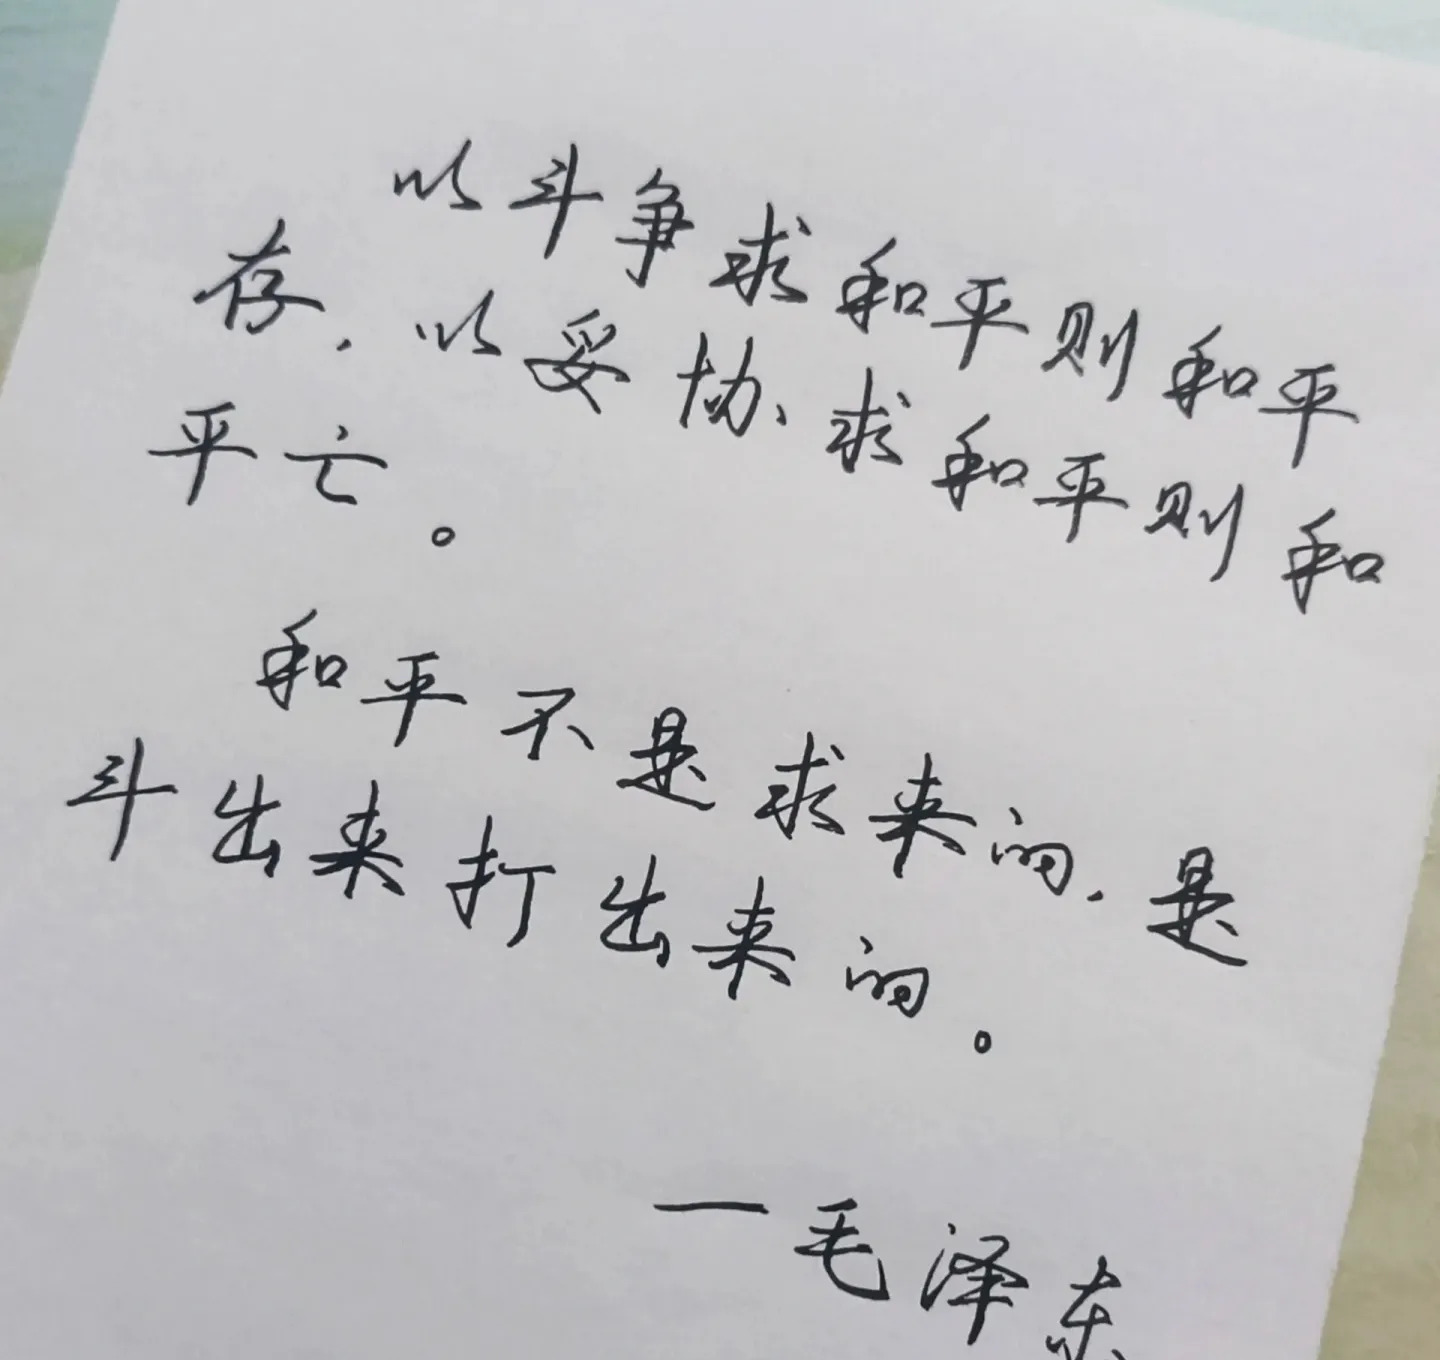 以斗争求和平则和平
存，以妥协，求和平则和
平亡。
和平不是求来的，是
斗出来打出来的。
—毛泽东